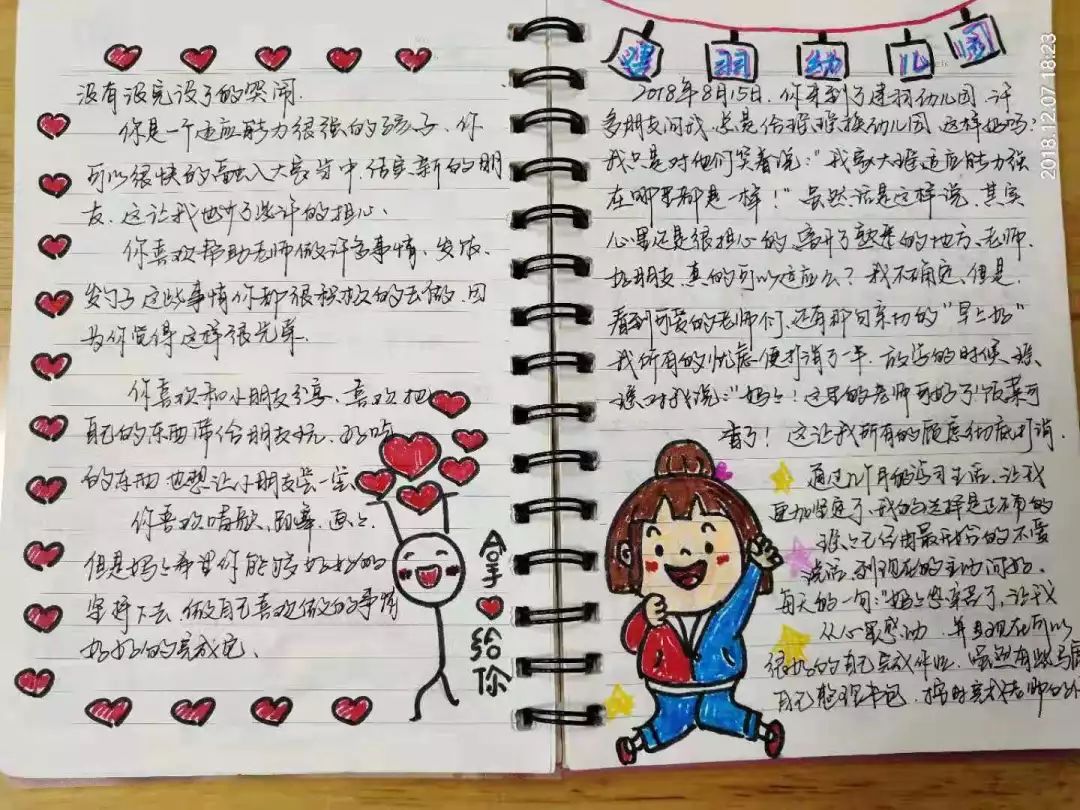 没有没完没了的哭闹.
你是一个适应能力很强的孩子.你
可以很快的融入大家当中.结交新的朋
友.这让我也少了些许的担心.
你喜欢帮助老师做许多事情、发饭、
发勺子这些事情你都很积极的去做.因
为你觉得这样很光荣.
你喜欢和小朋友分享.喜欢把
自己的东西带给朋友玩.好吃
的东西也想让小朋友尝一尝
你喜欢唱歌、跳舞、画画.
但是妈妈希望你能够好好的
坚持下去.做自己喜欢做的事情
好好的完成它.
全手给你
建羽幼儿园
2018年8月15日.你来到了建羽幼儿园.许
多朋友问我.总是给 换幼儿园.这样好吗?
我只是对他们笑着说:"我家大 适应能力强
在哪里都是一样!"虽然话是这样说.其实
心里还是很担心的.离开了熟悉的地方、老师.
好朋友.真的可以适应么?我不确定.但是.
看到可爱的老师们.还有那句亲切的"早上好"
我所有的忧虑便打消了一半.放学的时候
对我说:"妈妈!这里的老师可好了!饭菜可
香了!这让我所有的顾虑彻底打消.
通过几个月的学习生活.让我
更加坚定了.我的选择是正确的
已经由最开始的不爱
说话.到现在的主动问好.
每天的一句:"妈妈您辛苦了.让我
从心里感动.并且现在可以
很好的自己完成作业.虽然有些马
自己整理书包.按时完成老师的
2018.12.07 18:23